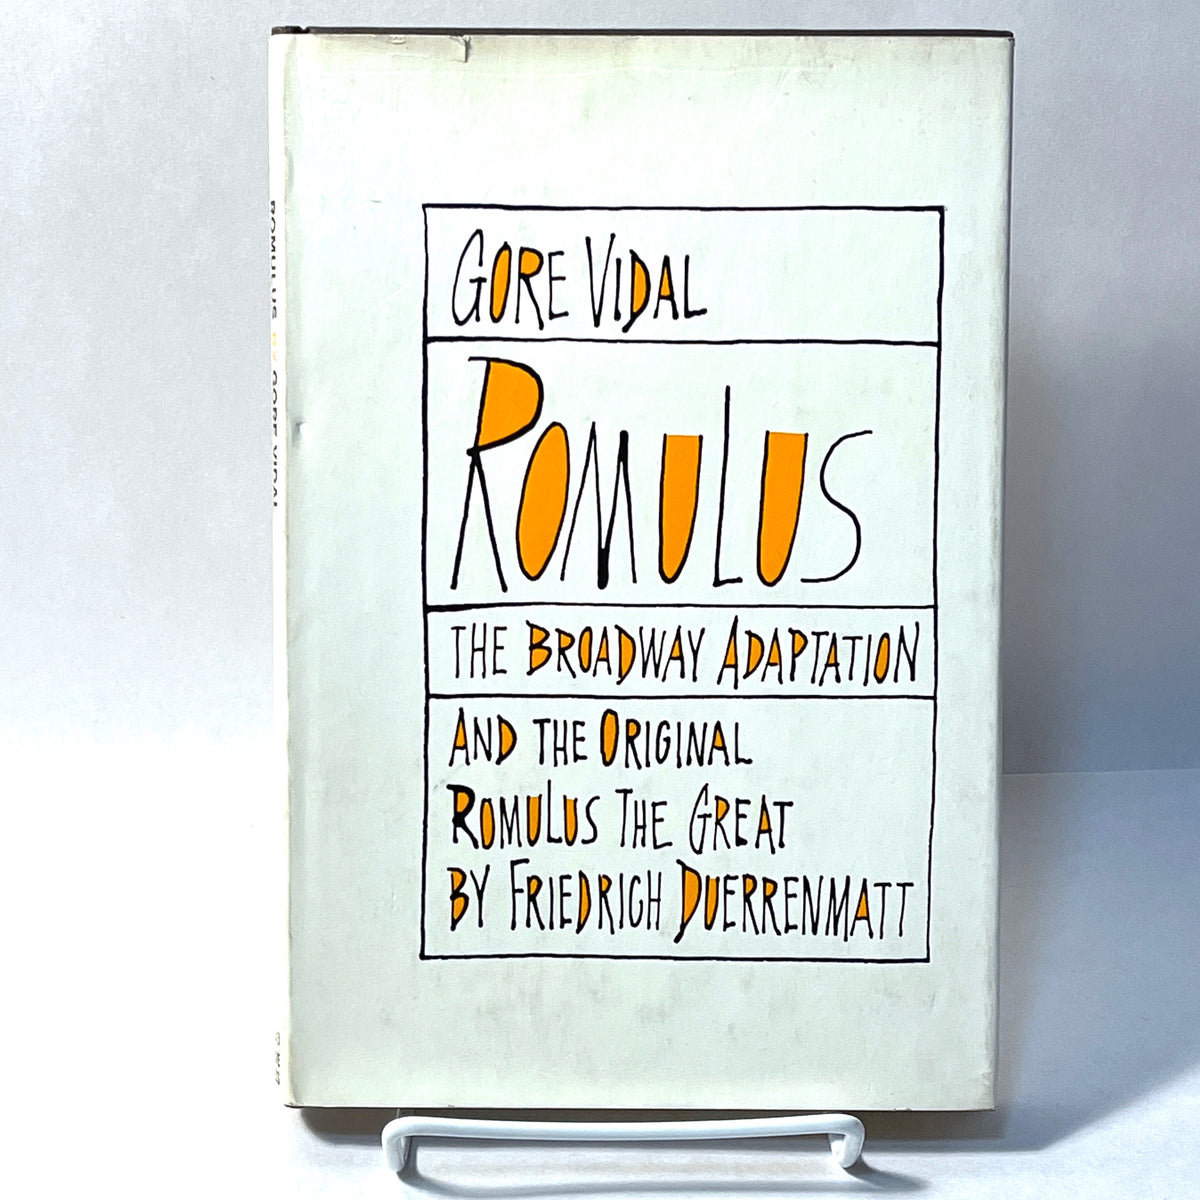 GORE VIDAL
ROMULUS
THE BROADWAY ADAPTATION
AND THE ORIGINAL
ROMULUS THE GREAT
BY FRIEDRICH DUERRENMATT
ROMULUS BY GORE VIDAL